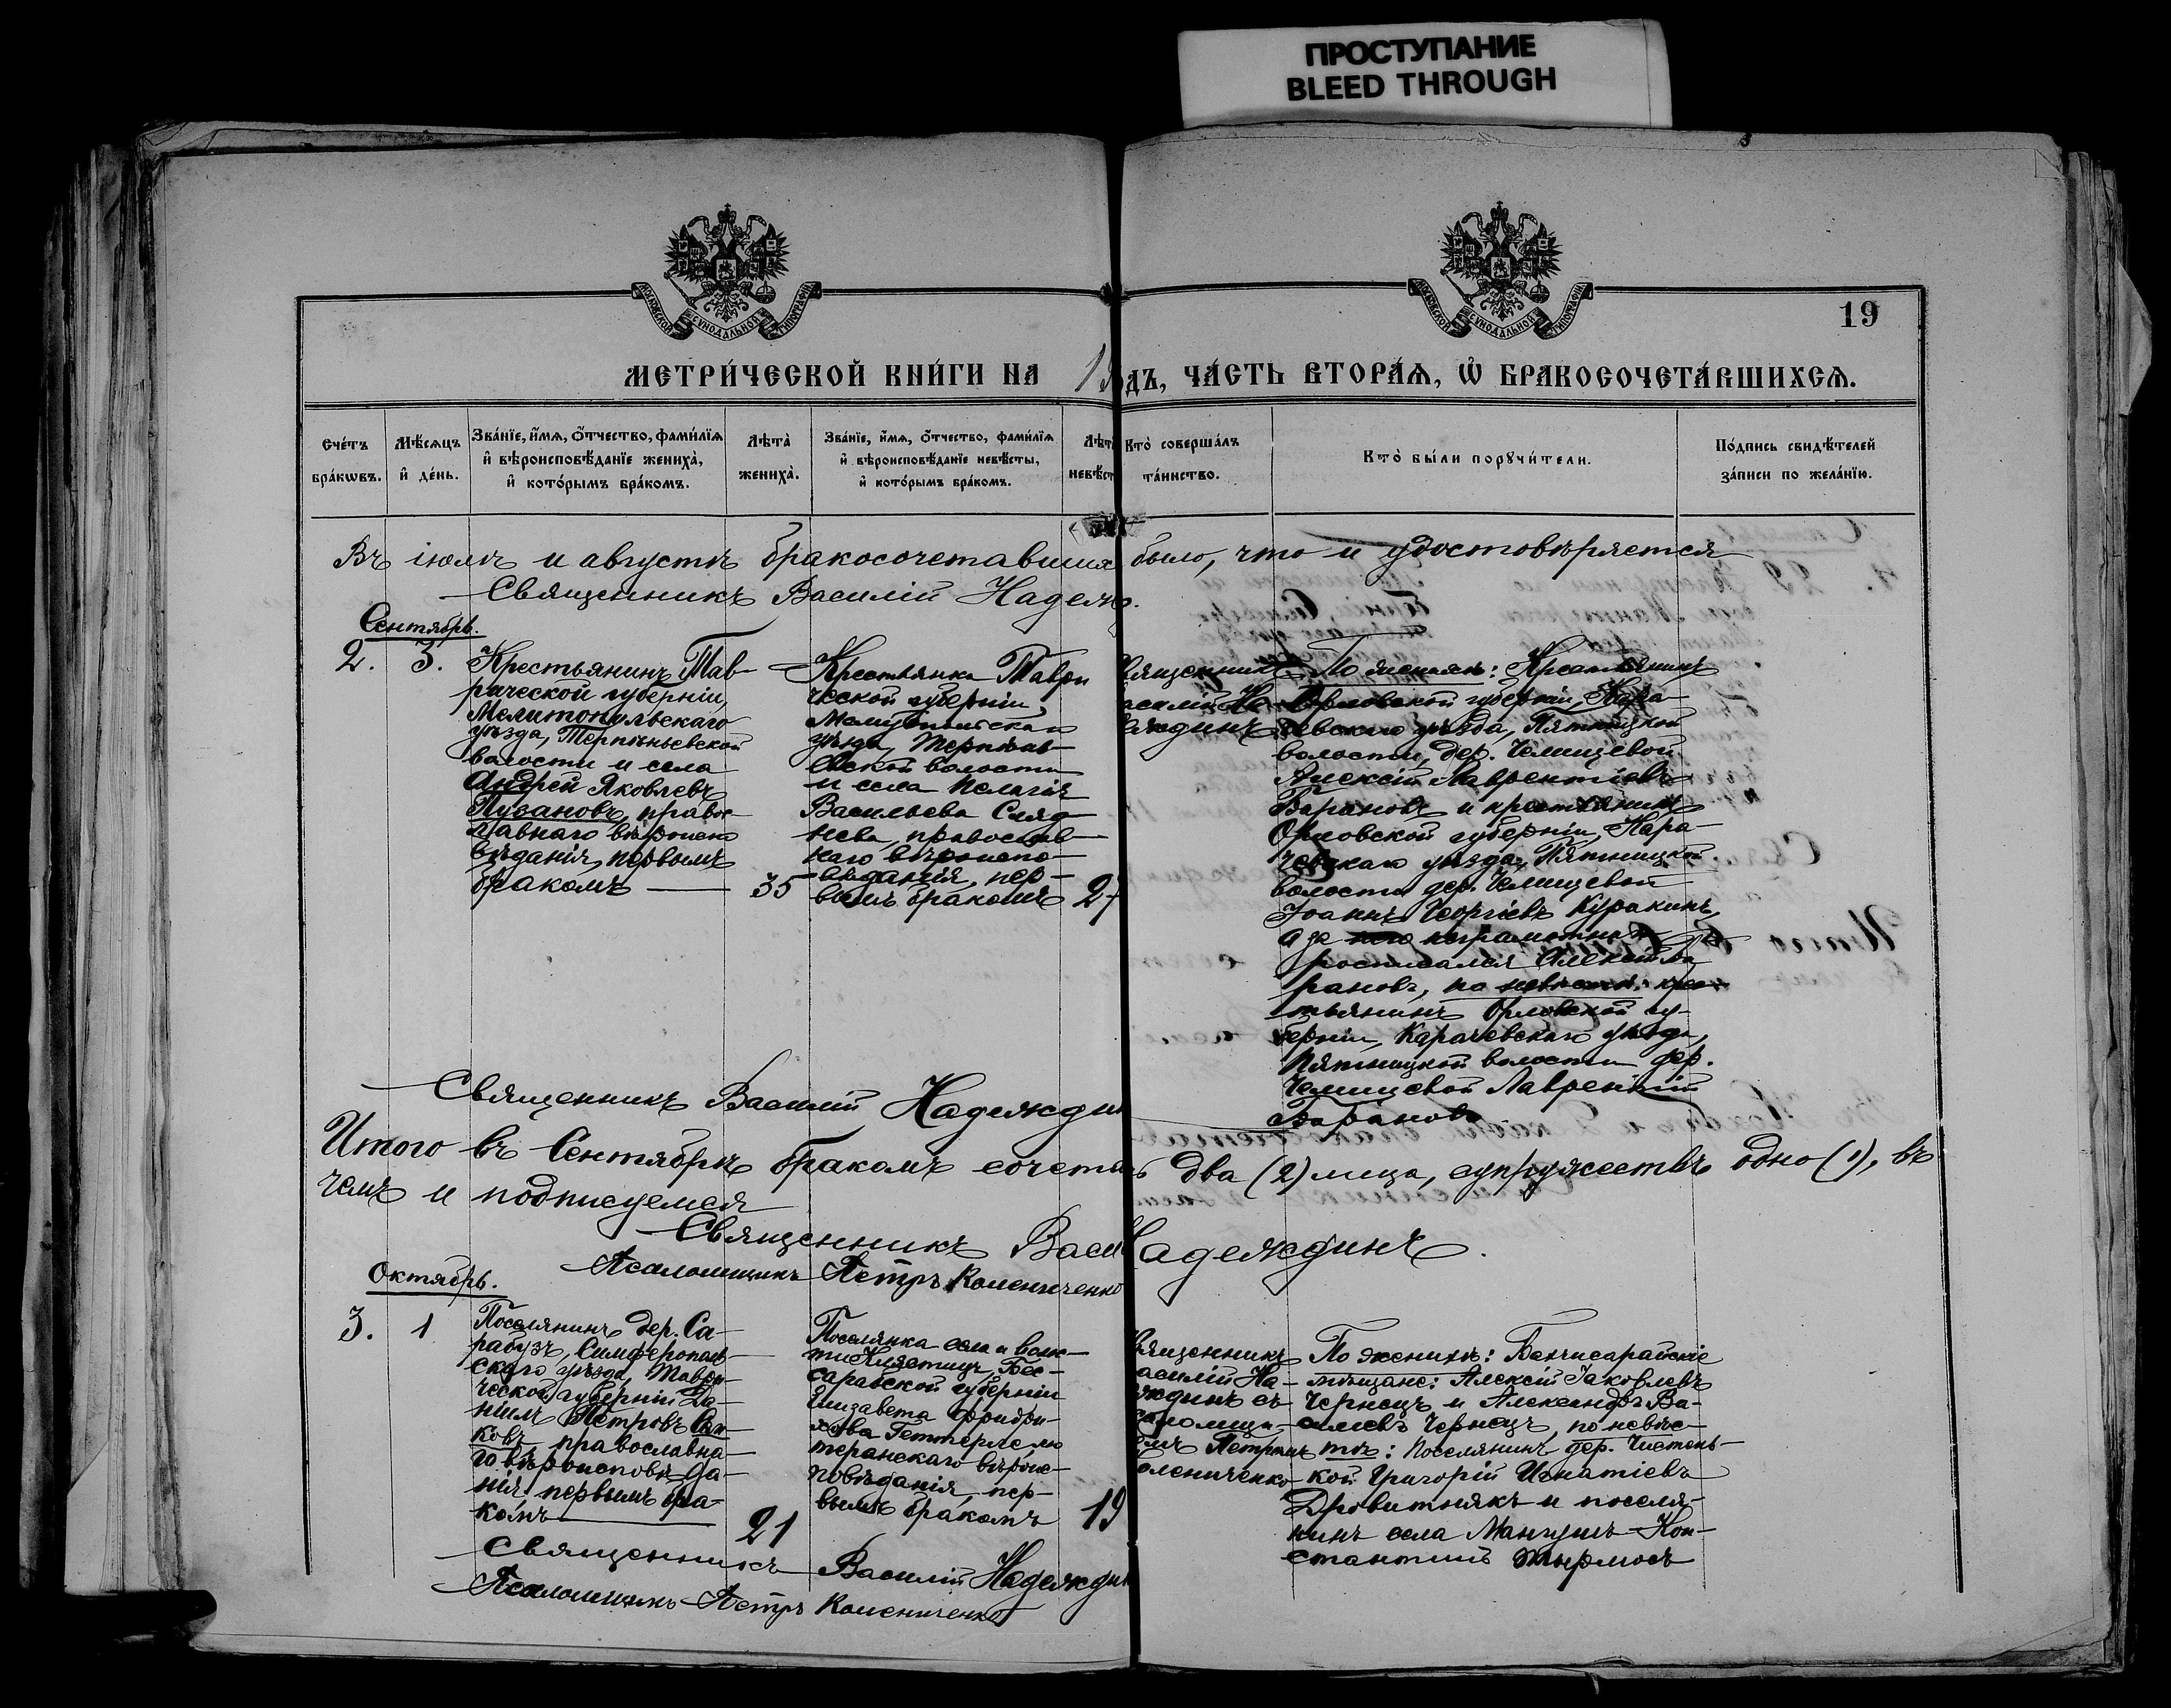 ПРОСТУПАНИЕ
BLEED THROUGH
МОСКОВСКОЙ СУНОДАЛЬНОЙ ТИПОГРАФІИ
МОСКОВСКОЙ СУНОДАЛЬНОЙ ТИПОГРАФІИ
19
МЕТРИ́ЧЕСКОЙ КНИ́ГИ НА 1
ДЪ, ЧА́СТЬ ВТОРА́Ѧ, Ѡ БРАКОСОЧЕТА́ВШИХСѦ.
Сче́тъ
бра́кѡвъ.
Мѣ́сѧцъ
и҆ де́нь.
Зва́нїе, и҆́мѧ, ѻ҆́тчество, фами́лїѧ
и҆ вѣроисповѣ́данїе жениха̀,
и҆ кото́рымъ бра́комъ.
Лѣта̀
жениха̀.
Зва́нїе, и҆́мѧ, ѻ҆́тчество, фами́лїѧ
и҆ вѣроисповѣ́данїе невѣ́сты,
и҆ кото́рымъ бра́комъ.
Лѣт
невѣ́ст
Кто̀ соверша́лъ
та́инство.
Кто̀ бы́ли порꙋчи́тели.
По́дпись свидѣ́телей
за́писи по жела́нїю.
Въ іюлѣ и августѣ бракосочетавшихъ было, что и удостовѣряется
Священникъ Василій Надеж
Сентябрь.
2. 3.
Крестьянинъ Тав-
рической губерніи,
Мелитопольскаго
уѣзда, Терпѣньевской
волости и села
Андрей Яковлевъ
Пузановъ, правос
лавнаго вѣроиспо
вѣданія, первымъ
бракомъ
35
Крестьянка Таври
ческой губерніи
Мелитопольскаго
уѣзда, Терпѣнь-
евской волости
и села Пелагія
Васильева
нева, православ-
наго вѣроиспо-
вѣданія, пер-
вымъ бракомъ
2
вященникъ
асилій На
еждинъ
По женихѣ: Крестьянинъ
Орловской губерніи, Кара-
чевскаго уѣзда, Пятницкой
волости, дер. Челищевой
Алексій Лаврентіевъ
Барановъ и крестьянинъ
Орловской губерніи, Кара-
чевскаго уѣзда, Пятницкой
волости дер. Челищевой
Іоаннъ Георгіевъ Куракинъ,
а за неграмотнаго
росписался Алексій Ба
рановъ, по невѣстѣ: крес-
тьянинъ Орловской гу-
берніи, Карачевскаго уѣзда,
Пятницкой волости дер.
Челищевой Лаврентій
Барановъ
Священникъ Василій Надеждин
Итого въ Сентябрѣ бракомъ сочета два (2) лица, супружествъ одно (1), въ
чемъ и подписуемся
Священникъ Васи адеждинъ.
Псаломщикъ Петръ Колениченко
Октябрь.
3. 1
Поселянинъ дер. Са-
рабузъ, Симферополь-
скаго уѣзда, Таври-
ческой губерніи Да-
ніилъ Петровъ
ковъ православна-
го вѣроисповѣда-
нія первымъ бра-
комъ
21
Поселянка села и волос-
ти Клястицъ, Бес-
сарабской губерніи
Елизавета Фридри-
хова Геттерле лю
теранскаго вѣроис-
повѣданія, пер-
вымъ бракомъ
19
вященникъ
асилій На-
еждинъ съ
саломщи-
омъ Петромъ
олениченко
По женихѣ: Бахчисарайскіе
мѣщане: Алексій Іаковлевъ
Чернецъ и Александръ Ва-
силіевъ Чернецъ, по невѣс-
тѣ: Поселянинъ дер. Чистень-
кой Григорій Игнатіевъ
Дровитнякъ и поселя-
нинъ села Мангушъ Кон-
стантинъ
Священникъ Василій Надеждин
Псаломщикъ Петръ Колениченко